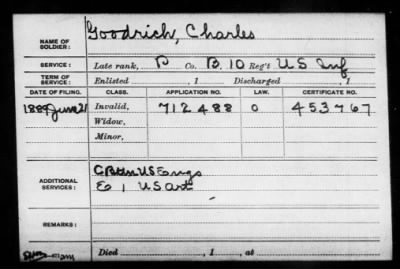 NAME OF SOLDIER: Goodrich, Charles
SERVICE: Late rank, P Co. B, 10 Reg't US Inf
TERM OF SERVICE: Enlisted , 1 Discharged , 1
DATE OF FILING. CLASS. APPLICATION NO. LAW. CERTIFICATE NO.
1889 June 21 Invalid, 712488 O 453767
Widow,
Minor,
ADDITIONAL SERVICES: C Battn US Engs
Co 1 US art
REMARKS:
Died , 1 , at